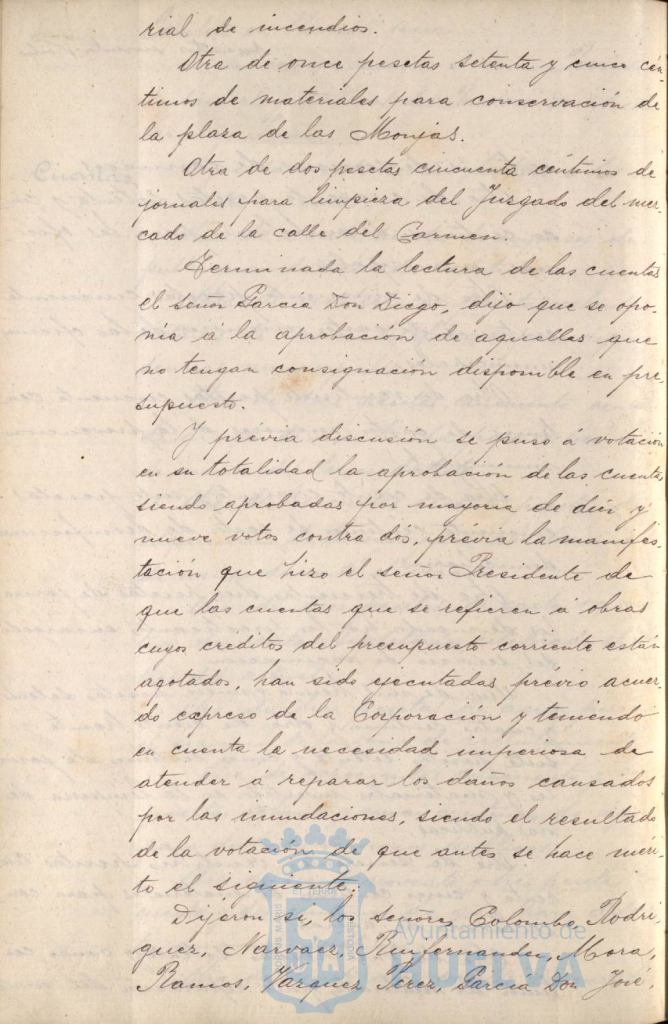 rial de incendios.
Otra de once pesetas setenta y cinco cén-
timos de materiales para conservación de
la plaza de las Monjas.
Otra de dos pesetas cincuenta céntimos de
jornales para limpieza del Juzgado del mer-
cado de la calle del Carmen.
Terminada la lectura de las cuentas
el señor García Don Diego, dijo que se opo-
nía á la aprobación de aquellas que
no tengan consignación disponible en pre
supuesto.
Y previa discusión se puso á votación
en su totalidad la aprobación de las cuentas
siendo aprobadas por mayoría de diez y
nueve votos contra dós, prévia la manifes-
tación que hizo el señor Presidente de
que las cuentas que se refieren á obras
cuyos créditos del presupuesto corriente están
agotados, han sido ejecutadas prévio acuer-
do expreso de la Corporación y teniendo
en cuenta la necesidad imperiosa de
atender á reparar los daños causados
por las inundaciones, siendo el resultado
de la votación de que antes se hace méri-
to el siguiente:
Dijeron si, los señores Colombo, Rodri-
guez, Narvaez, Ruifernandez, Mora,
Ramos, Vazquez Perez, García Don José,
Ayuntamiento de
HUELVA